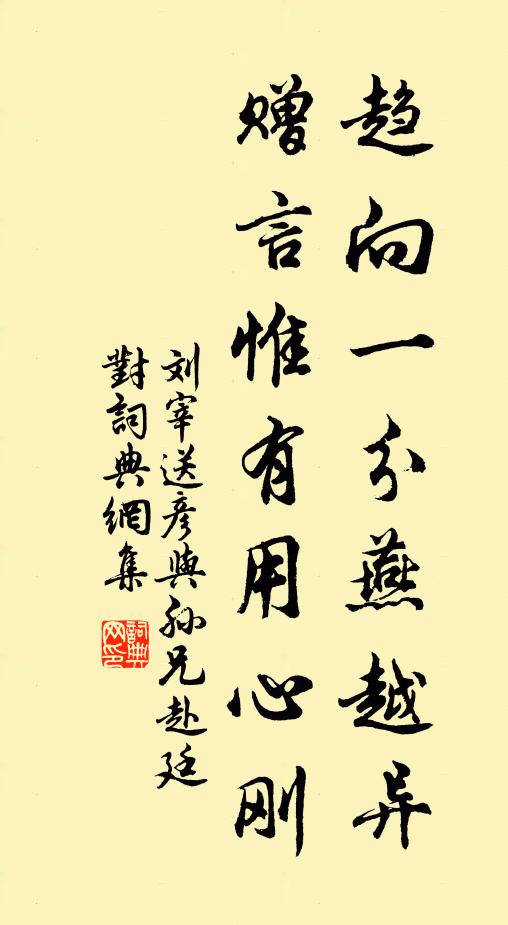 趋向一分燕越异
赠言惟有用心刚
刘宰送彦與孙兄赴廷
對詞典網集
詞典网印